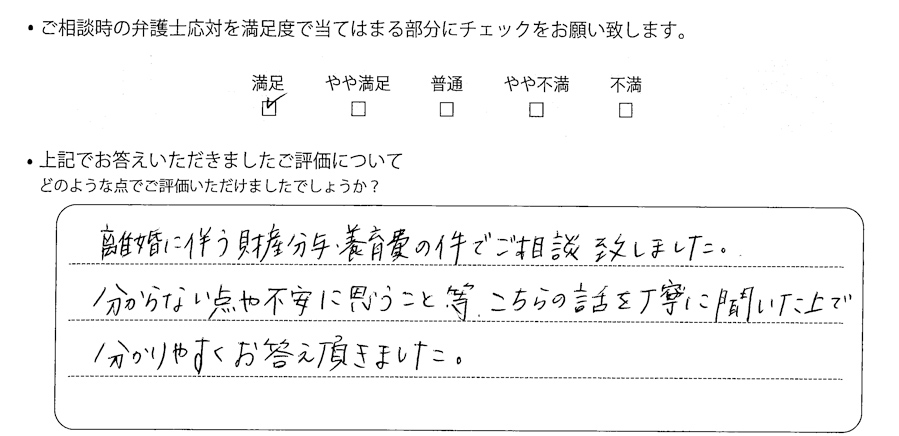 ・ご相談時の弁護士応対を満足度で当てはまる部分にチェックをお願い致します。
満足 やや満足 普通 やや不満 不満
☑ □ □ □ □
・上記でお答えいただきましたご評価について
どのような点でご評価いただけましたでしょうか？
離婚に伴う財産分与、養育費の件でご相談致しました。
分からない点や不安に思うこと等、こちらの話を丁寧に聞いた上で
分かりやすくお答え頂きました。